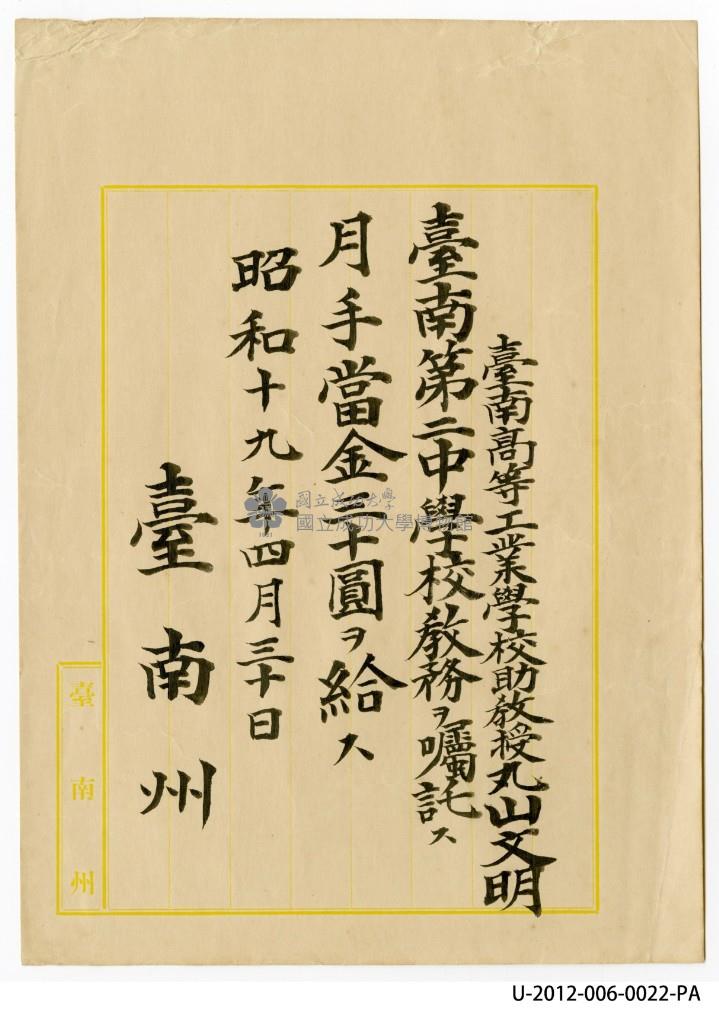 臺南高等工業學校助教授丸山文明
臺南第二中學校教務ヲ囑託ス
月手當金三十圓ヲ給ス
昭和十九年四月三十日
臺南州
臺南州
國立成功大學
國立成功大學博物館
U-2012-006-0022-PA